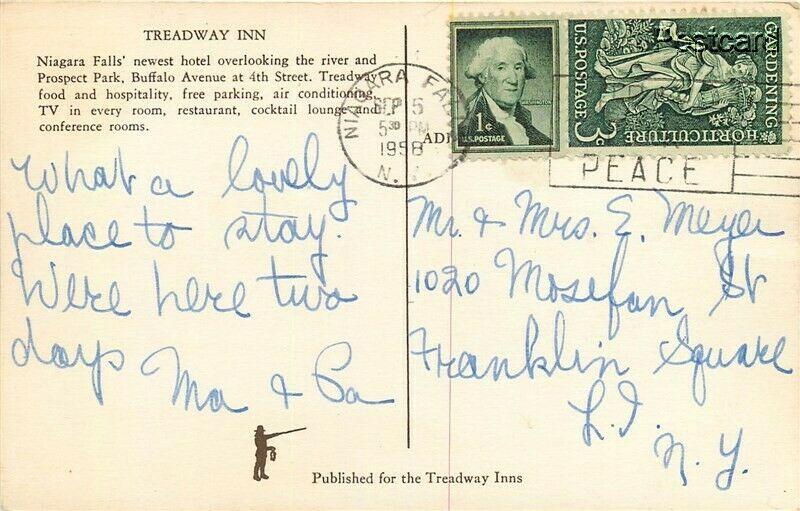 TREADWAY INN
Niagara Falls' newest hotel overlooking the river and
Prospect Park, Buffalo Avenue at 4th Street. Treadway
food and hospitality, free parking, air conditioning,
TV in every room, restaurant, cocktail lounge and
conference rooms.
What a lovely
place to stay.
Were here two
days
Ma & Pa
Published for the Treadway Inns
NIAGARA FALLS
N.Y.
SEP 5
5 30 PM
1958
ADD
1¢
U.S. POSTAGE
GARDENING
HORTICULTURE
U.S. POSTAGE
3¢
PEACE
Mr. & Mrs. E. Meyer
1020 Mosefan St
Franklin Square
L.I.
N.Y.